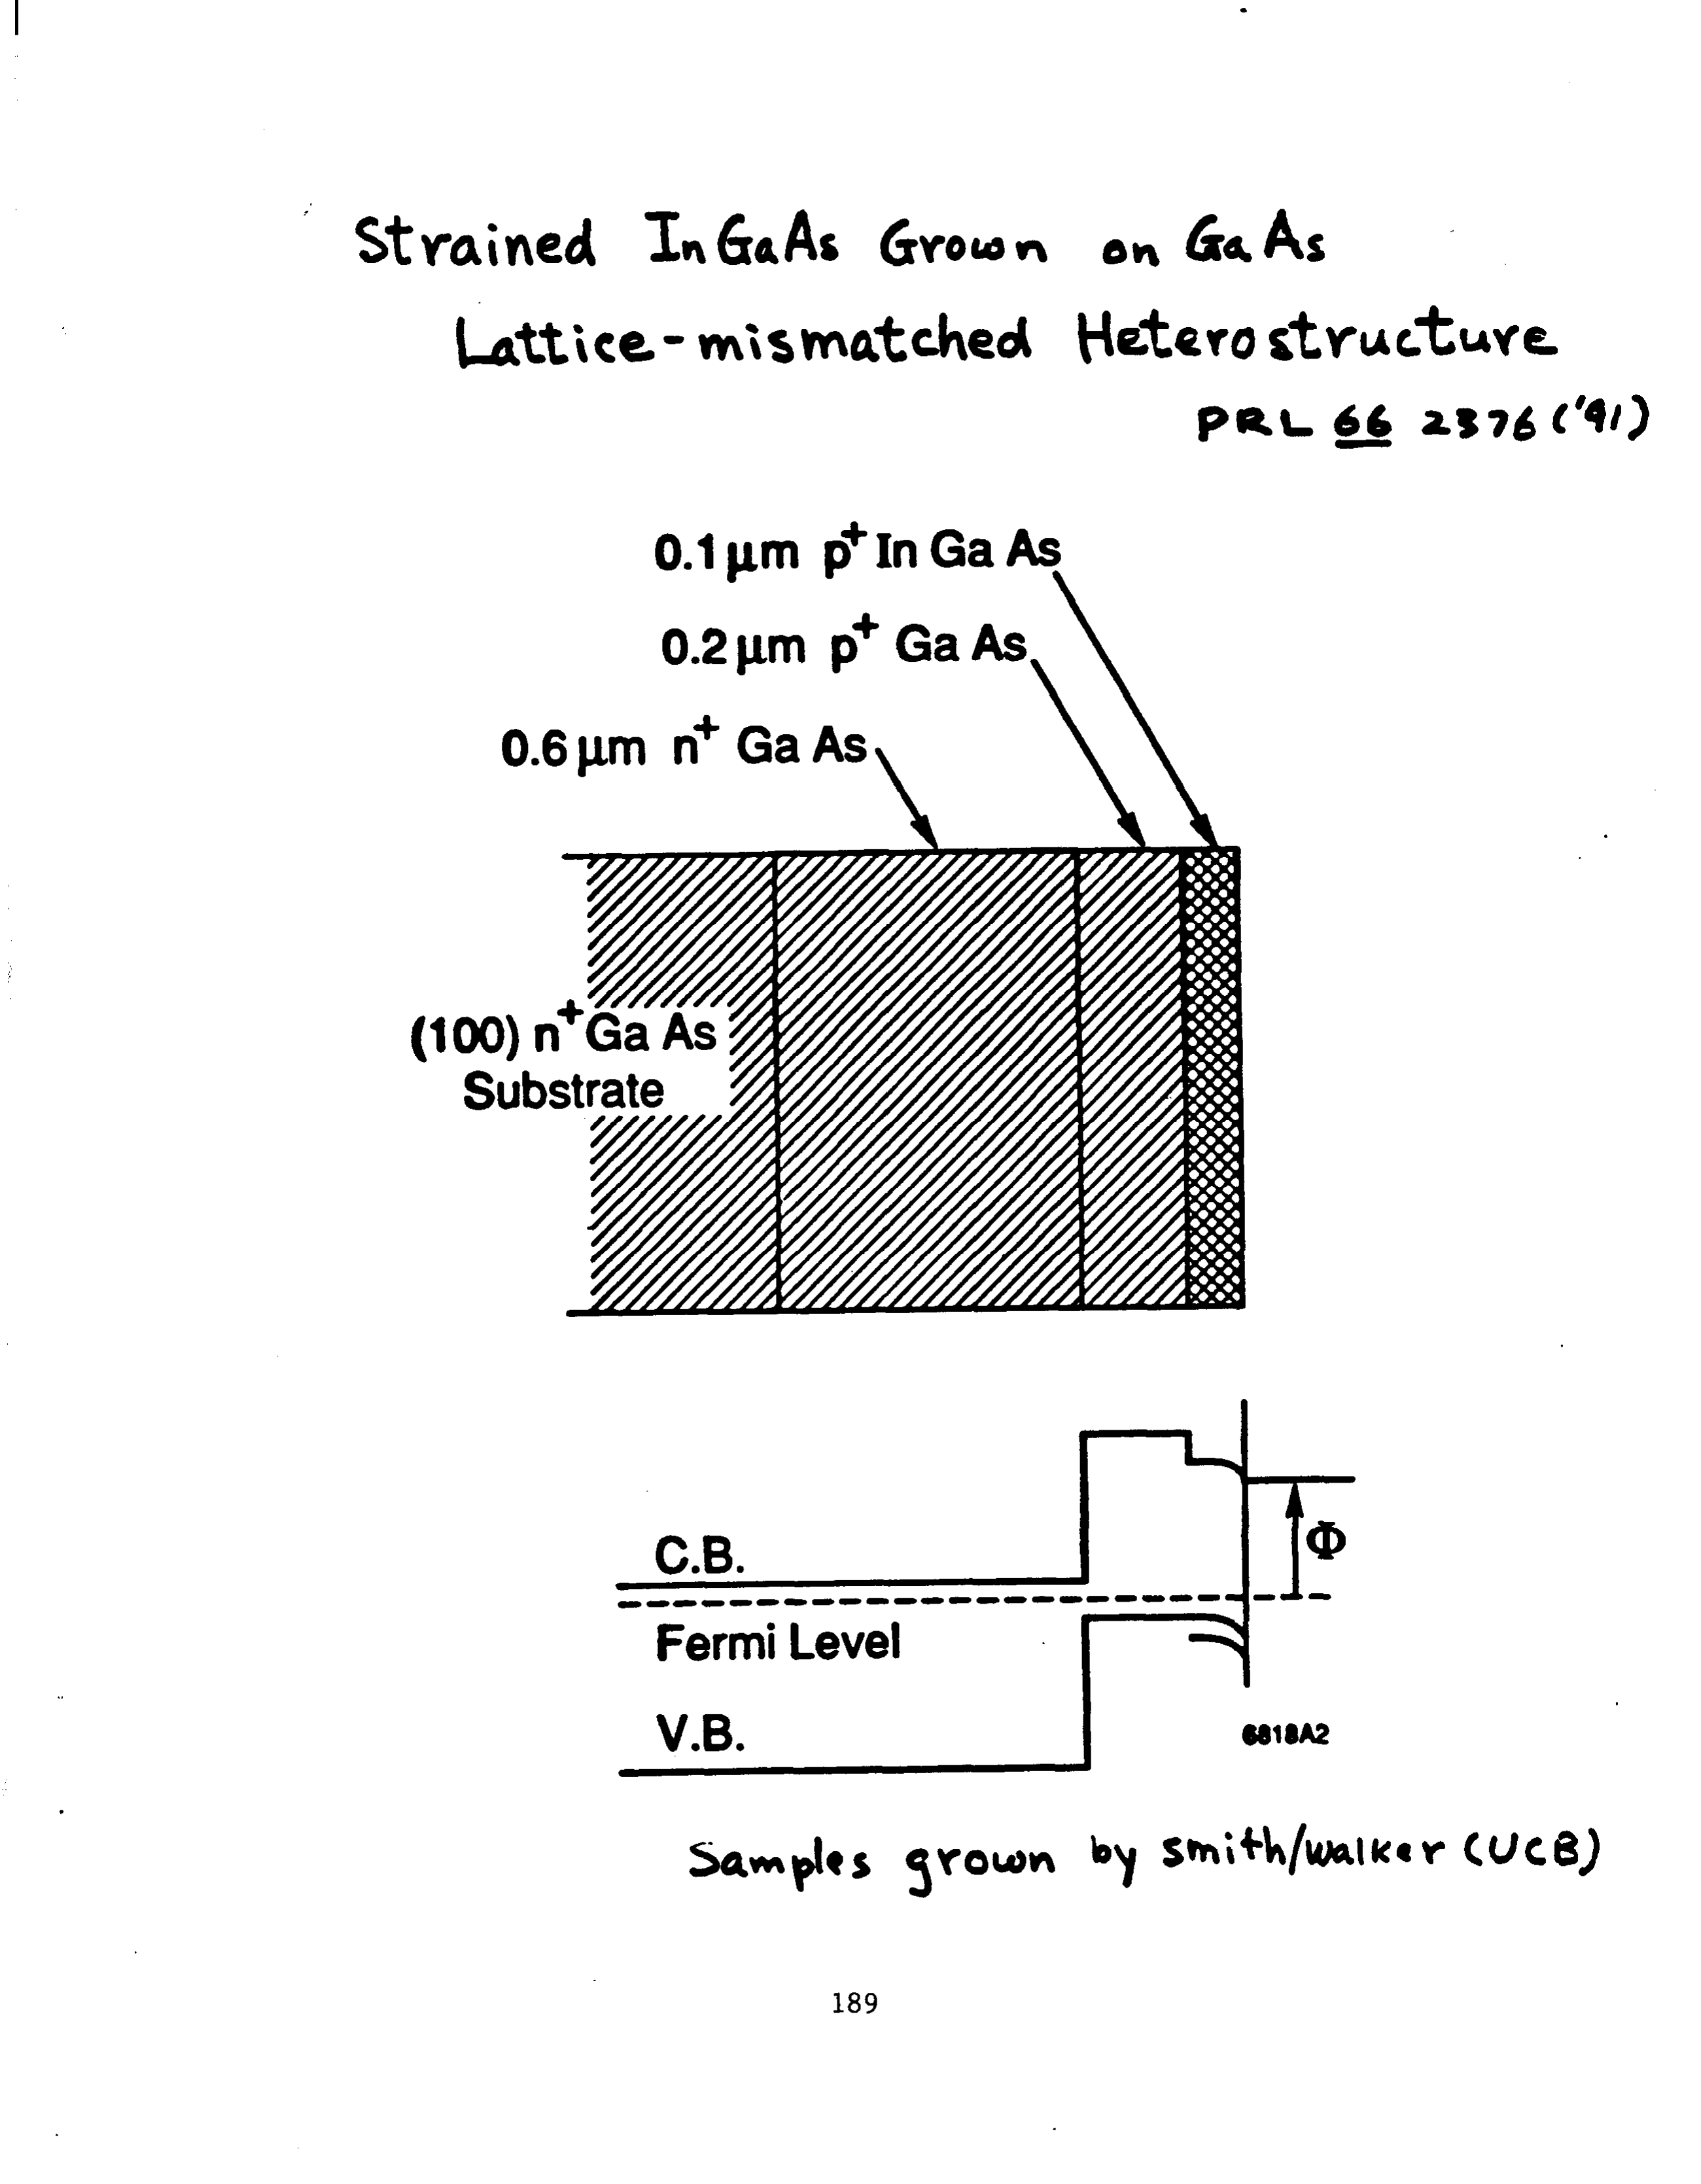 Strained InGaAs Grown on GaAs
Lattice-mismatched Heterostructure
PRL 66 2376 ('91)
0.1 μm p⁺ In Ga As
0.2 μm p⁺ Ga As
0.6 μm n⁺ Ga As
(100) n⁺ Ga As
Substrate
C.B.
Φ
Fermi Level
V.B.
6818A2
Samples grown by Smith/Walker (UCB)
189